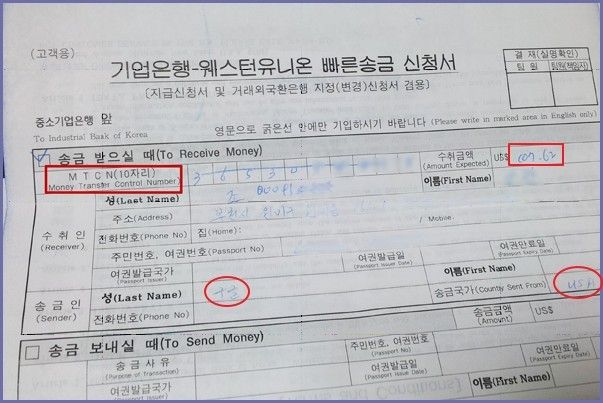 (고객용)
기업은행-웨스턴유니온 빠른송금 신청서
[지급신청서 및 거래외국환은행 지정(변경)신청서 겸용]
결 재(실명확인)
팀 원 팀원(책임자)
중소기업은행 앞
To Industrial Bank of Korea
영문으로 굵은선 안에만 기입하시기 바랍니다 (Please write in marked area in English only)
송금 받으실 때(To Receive Money)
수취금액 (Amount Expected) US$ 607.62
M T C N(10자리)
Money Transfer Control Number)
3 6 5 3 0
성(Last Name) 이름(First Name)
주소(Address)
수 취 인 (Receiver)
전화번호(Phone No) 집(Home): / Mobile.
주민번호, 여권번호(Passport No)
여권발급국가 (Passport Issuer) 여권발급일 (Passport Issuer Date) 여권만료일 (Passport Expiry Date)
송 금 인 (Sender)
성(Last Name) 구글 이름(First Name)
전화번호(Phone No) 송금국가(County Sent From) USA
송금금액 (Amount) US$
송금 보내실 때(To Send Money)
송 금 사 유 (Purpose of Transaction) 주민번호, 여권번호 (Passport No)
여권발급국가 여권발급일 (Passport Issue Date) 여권만료일 (Passport Expiry Date)
성(Last Name) 이름(First Name)